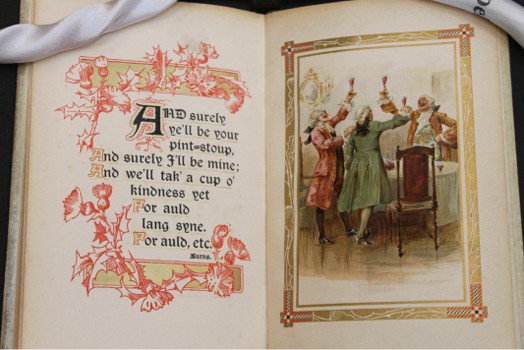 AND surely
ye'll be your
pint=stoup,
And surely I'll be mine;
And we'll tak' a cup o'
kindness yet
For auld
lang syne.
For auld, etc.
Burns.